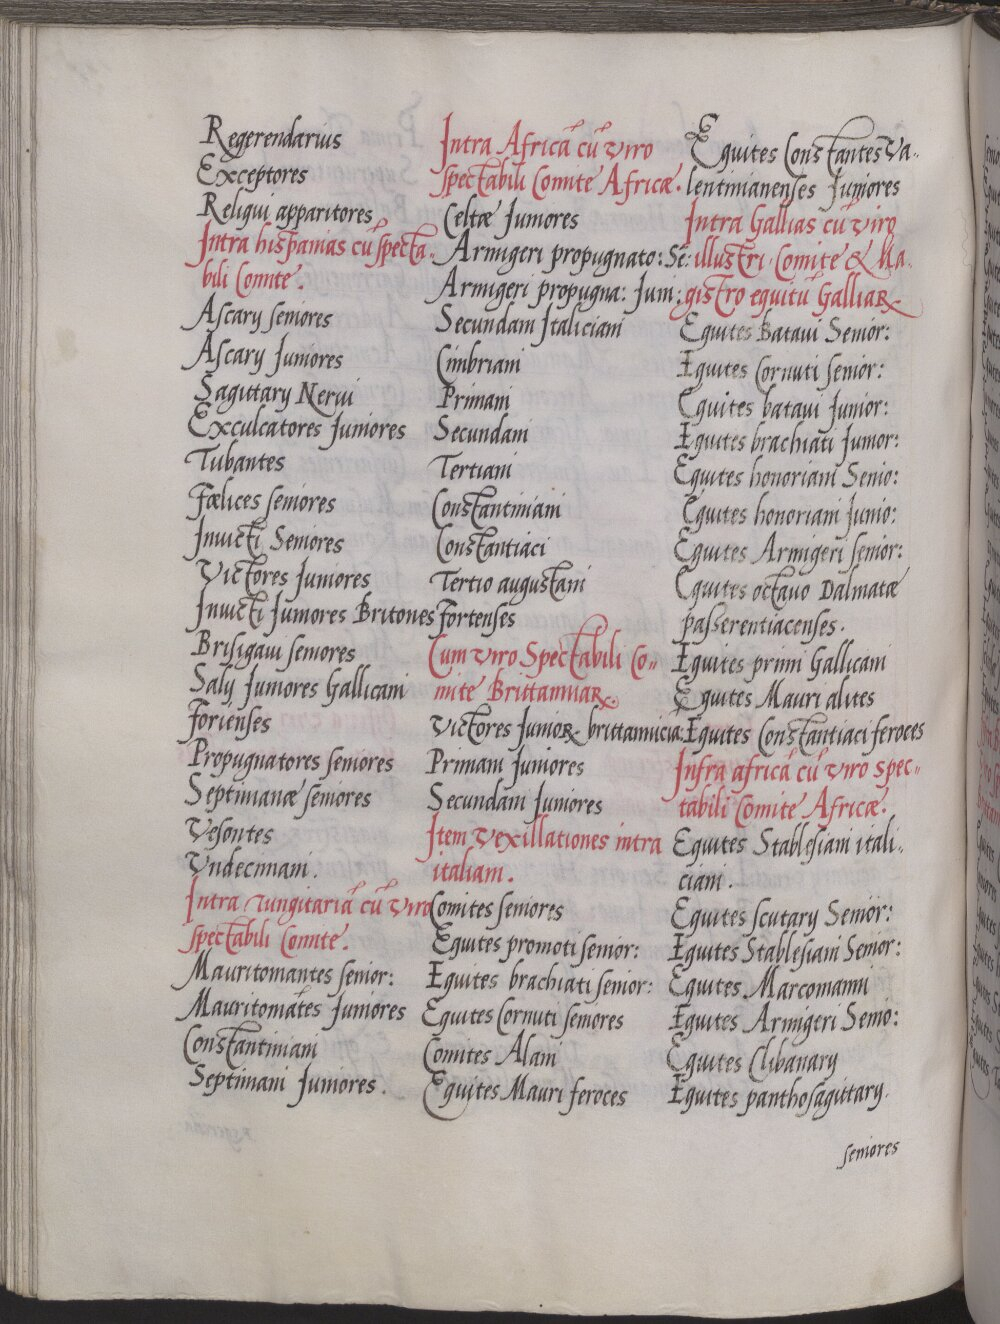 Regerendarius
Exceptores
Reliqui apparitores
Intra hispanias cũ specta-
bili Comite.
Ascarij seniores
Ascarij Juniores
Sagittarij Nervi
Exculcatores Juniores
Tubantes
Fœlices seniores
Invicti Seniores
Victores Juniores
Invicti Juniores Britones
Brisigaui seniores
Salij Juniores Gallicani
forienses
Propugnatores seniores
Septimanæ seniores
Vesontes
Vndecimani.
Intra tungitariã cũ viro
spectabili Comite.
Mauritomantes senior:
Mauritomãtes Juniores
Constantiniani
Septimani Juniores.
Intra Africã cũ viro
spectabili Comite Africæ.
Celtæ Juniores
Armigeri propugnato: Se:
Armigeri propugna: Jun:
Secundani Italiciani
Cimbriani
Primani
Secundani
Tertiani
Constantiniani
Constantiaci
Tertio augustani
Fortenses
Cum viro Spectabili Co-
mite Brittanniaꝝ
Victores Junioꝝ brittannicia:
Primani Juniores
Secundani Juniores
Item Vexillationes intra
italiam.
Comites seniores
Equites promoti senior:
Equites brachiati senior:
Equites Cornuti seniores
Comites Alani
Equites Mauri feroces
Equites Constantes Va-
lentinianenses Juniores
Intra Gallias cũ viro
illustri Comite & Ma-
gistro equitũ Galliaꝝ
Equites Bataui Senior:
Equites Cornuti senior:
Equites bataui Junior:
Equites brachiati Junior:
Equites honoriani Senio:
Equites honoriani Junio:
Equites Armigeri senior:
Equites octauo Dalmatæ
passerentiacenses.
Equites primi Gallicani
Equites Mauri alites
Equites Constantiaci feroces
Infra africã cũ viro spec-
tabili Comite Africæ.
Equites Stablesiani itali-
ciani.
Equites scutarij Senior:
Equites Stablesiani Senior:
Equites Marcomanni
Equites Armigeri Senio:
Equites Clibanarij
Equites panthosagittarij.
seniores